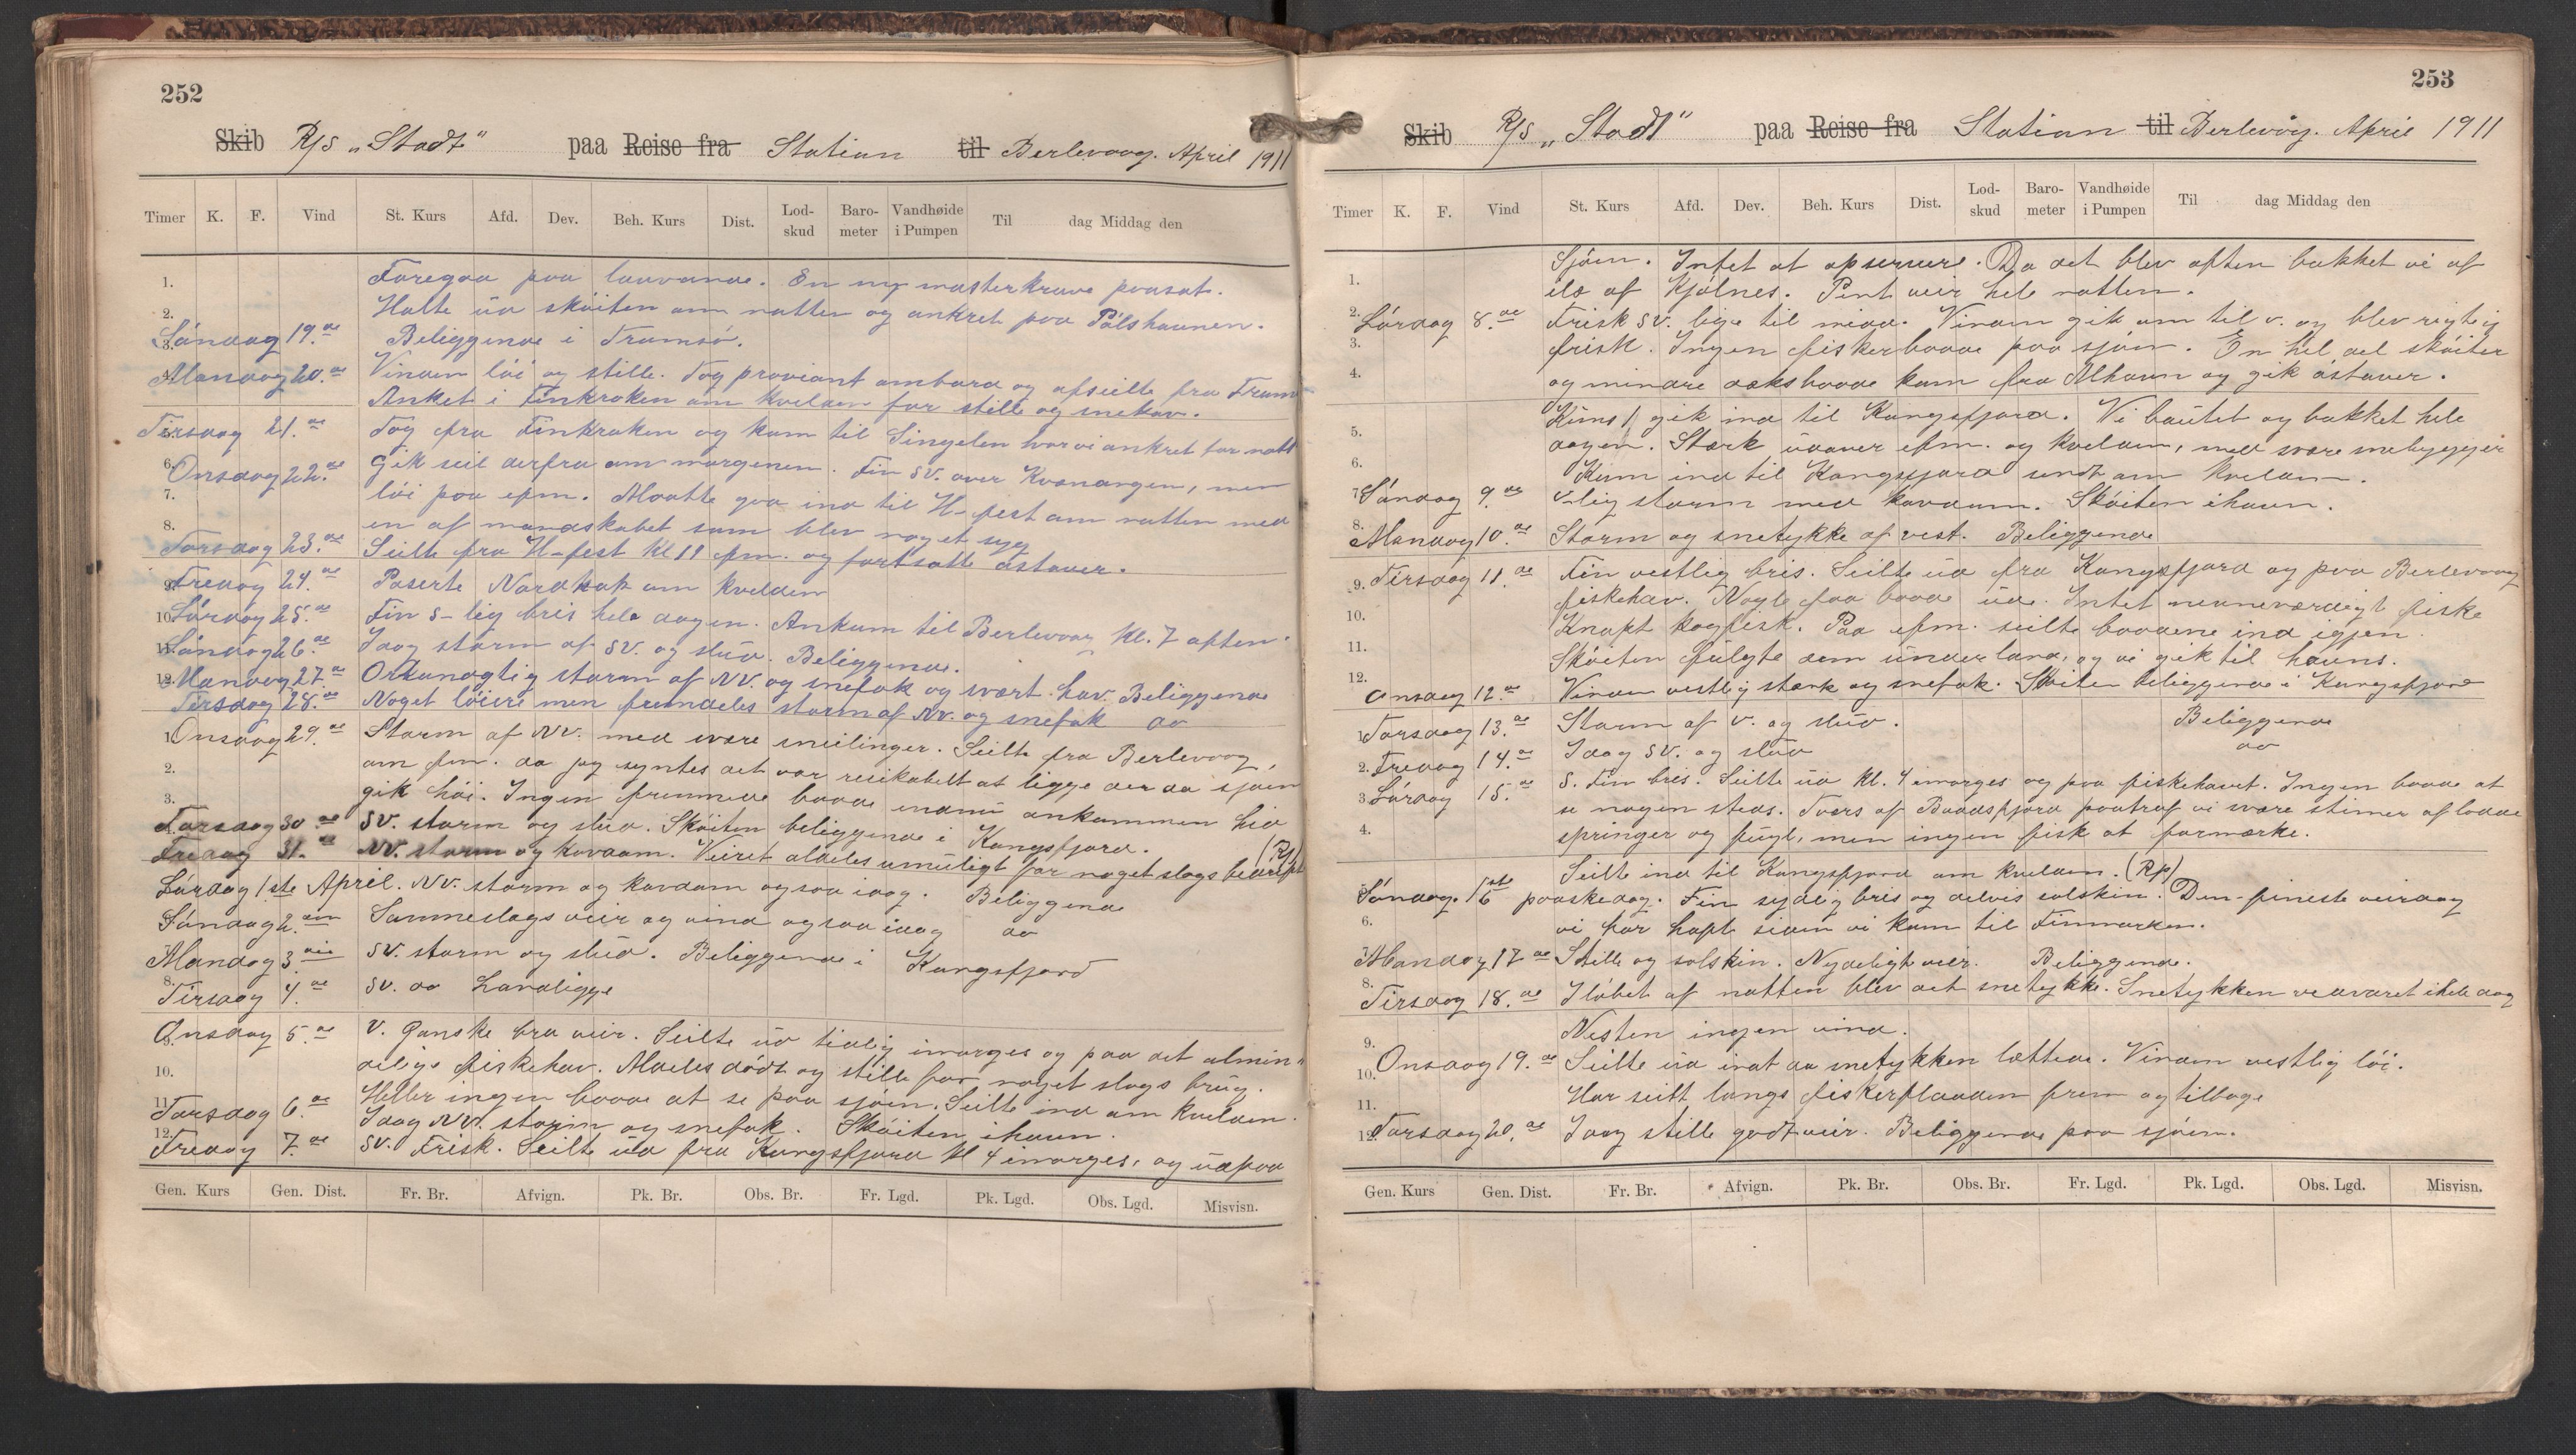 252
Skib R/s „Stadt" paa Reise fra Station til Berlevaag. April 1911
Timer K. F. Vind St. Kurs Afd. Dev. Beh. Kurs Dist. Lod-skud Baro-meter Vandhøide i Pumpen Til dag Middag den
1. Foregaa paa laavande. En ny masterkrave paasat.
2. Halte ud skøiten om natten og ankret paa Pølshavnen.
3. Søndag 19.de Beliggende i Tromsø.
Mandag 20.de Vinden løi og stille. Tog proviant ombord og afseilte fra Trom
Anket i Finkroken om kvelden for stille og snekav.
Tirsdag 21.de Tog fra Finkroken og kom til Singelen hvor vi ankret for natt
6. Onsdag 22.de Gik seil derfra om morgenen. Fin SV. over Kvænangen, men
7. løi paa efm. Maatte gaa ind til H-fest om natten med
8. en af mandskabet som blev noget syg
Torsdag 23.de Seilte fra H-fest Kl 11 fm. og fortsatte østover.
9. Fredag 24.de Paserte Nordkap om kvelden
10. Lørdag 25.de Fin S-lig bris hele dagen. Ankom til Berlevaag Kl. 7 aften.
11. Søndag 26.de Idag storm af SV. og slud. Beliggende.
12. Mandag 27.de Orkanagtig storm af NV. og snefok og svært hav. Beliggende
Tirsdag 28.de Noget løiere men fremdeles storm af NV. og snefok do
1. Onsdag 29.de Storm af NV. med svære sneilinger. Seilte fra Berlevaag,
2. om fm. da jeg syntes det var resikabelt at ligge der da sjøen
3. gik høi. Ingen fremmede baade endnu ankommen hid
Torsdag 30.de SV. storm og slud. Skøiten beliggende i Kongsfjord.
Fredag 31.te NV. storm og kovdom. Veiret aldeles umuligt for noget slags bedrift (Rp)
Lørdag 1ste April. NV. storm og kovdom ogsaa idag. Beliggende
Søndag 2.den Sammeslags veir og vind ogsaa idag do
Mandag 3.die SV. storm og slud. Beliggende i Kongsfjord
8. Tirsdag 4.de SV. do Landligge
Onsdag 5.te V. Ganske bra veir. Seilte ud tidlig imorges og paa det almin"
10. delige fiskehav. Aldeles dødt og stille for noget slags brug.
11. Heller ingen baade at se paa sjøen. Seilte ind om kvelden.
Torsdag 6.te Idag NV. storm og snefok. Skøiten i havn.
12. Fredag 7.de SV. Frisk. Seilte ud fra Kongsfjord kl 4 imorges, og ud paa
Gen. Kurs Gen. Dist. Fr. Br. Afvign. Pk. Br. Obs. Br. Fr. Lgd. Pk. Lgd. Obs. Lgd. Misvisn.
253
Skib R/s „Stadt" paa Reise fra Station til Berlevåg. April 1911
Timer K. F. Vind St. Kurs Afd. Dev. Beh. Kurs Dist. Lod-skud Baro-meter Vandhøide i Pumpen Til dag Middag den
1. Sjøen. Intet at opservere. Da det blev aften bakket vi af
els af Kjølnes. Pent veir hele natten.
2. Lørdag 8.de Frisk SV. lige til midd. Vinden gik om til V. og blev rigtig
3. frisk. Ingen fiskerbaade paa sjøen. En hel del skøiter
4. og mindre dæksbaade kom fra Alhavn og gik østover.
5. Kuns 1 gik ind til Kongsfjord. Vi bautet og bakket hele
dagen. Stærk udover efm. og kvelden, med svære snebygger
6. Kom ind til Kongsfjord sendt om kvelden.
7. Søndag 9.de V-lig storm med kovdom. Skøiten i havn.
8. Mandag 10.de Storm og snetykke af vest. Beliggende
9. Tirsdag 11.de Fin vestlig bris. Seilte ud fra Kongsfjord og paa Berlevaag
10. fiskehav. Nogle faa baade ude. Intet nævneværdigt fiske
Knapt kogfisk. Paa efm. seilte baadene ind igjen.
11. Skøiten fulgte dem under land, og vi gik til havns.
12. Onsdag 12.te Vinden vestlig stærk og snefok. Skøiten beliggende i Kongsfjord
1. Torsdag 13.de Storm af V. og slud. Beliggende
2. Fredag 14.de Idag SV. og slud do
3. Lørdag 15.de S. Fin bris. Seilte ud kl. 4 imorges og paa fiskehavet. Ingen baade at
se nogen steds. Tvers af Baadsfjord paatraf vi svære stimer af lodde
4. springer og fugl, men ingen fisk at formærke.
Seilte ind til Kongsfjord om kvelden. (Rp)
Søndag. 16 1ste paaskedag. Fin sydlig bris og delvis solskin. Den fineste veirdag
6. vi har hapt siden vi kom til Finmarken.
Mandag 17.de Stille og solskin. Nydeligt veir. Beliggende.
8. Tirsdag 18.de I løbet af natten blev det snetykke. Snetykken vedvaret i hele dag
9. Nesten ingen vind.
10. Onsdag 19.de Seilte ud inat da snetykken lettede. Vinden vestlig løi.
11. Har seilt langs fiskerflaaden frem og tilbage
12. Torsdag 20.de Idag stille godt veir. Beliggende paa sjøen.
Gen. Kurs Gen. Dist. Fr. Br. Afvign. Pk. Br. Obs. Br. Fr. Lgd. Pk. Lgd. Obs. Lgd. Misvisn.